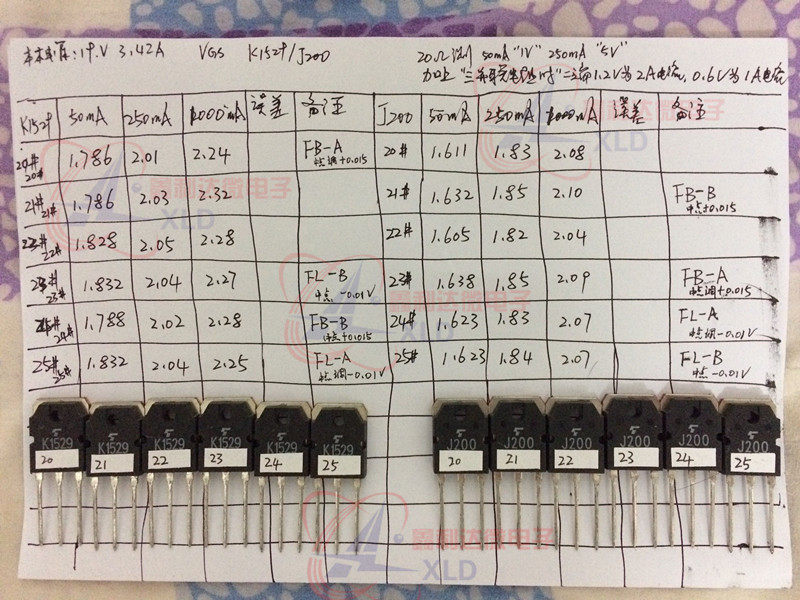 19.V 3.42A VGS K1529/J200 20Ω 50mA "1V" 250mA "5V"
1.2V为2A电流, 0.6V为1A电流
K1529 50mA 250mA 1000mA 误差 备注 J200 50mA 250mA 1000mA 误差 备注
20# 1.786 2.01 2.24 FB-A 20# 1.611 1.83 2.08
20# 中点调+0.015
21# 1.786 2.03 2.32 21# 1.632 1.85 2.10 FB-B
21# 中点+0.015
22# 1.828 2.05 2.28 22# 1.605 1.82 2.04
22#
23# 1.832 2.04 2.27 FL-B 23# 1.638 1.85 2.09 FB-A
23# 中点-0.01V 中点调+0.015
24# 1.788 2.02 2.28 FB-B 24# 1.623 1.83 2.07 FL-A
24# 中点+0.015 中点调-0.01V
25# 1.832 2.04 2.25 FL-A 25# 1.623 1.84 2.07 FL-B
25# 中点调-0.01V 中点-0.01V
K1529 K1529 K1529 K1529 K1529 K1529 J200 J200 J200 J200 J200 J200
20 21 22 23 24 25 20 21 22 23 24 25
鑫利达微电子
XLD
鑫利达微电子
XLD
鑫利达微电子
XLD
鑫利达微电子
XLD